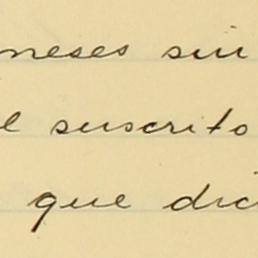 meses sin
el suscrito
que dic